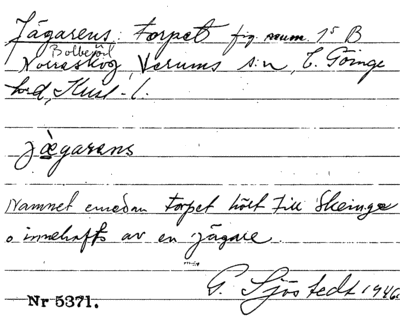 Jägarens: torpet fig. num 15 B
Norraskog, Verums s:n, V. Göinge
hd, Krist. l.
jägarens
Namnet emedan torpet hört till Skeinge
o innehafts av en jägare.
G. Sjöstedt 1946.
Nr 5371.